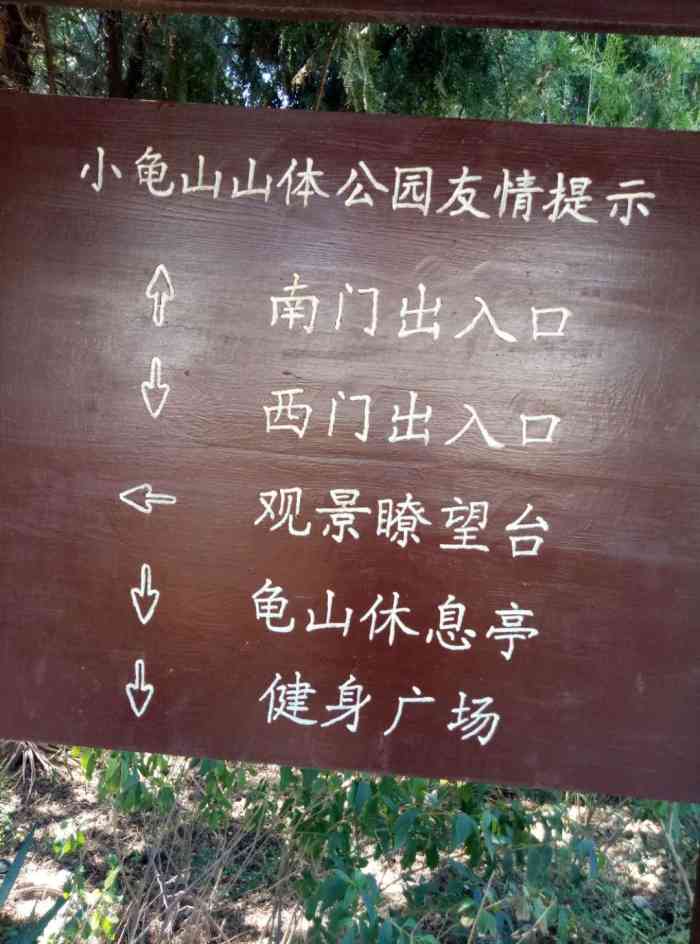 小龟山山体公园友情提示
南门出入口
西门出入口
观景瞭望台
龟山休息亭
健身广场